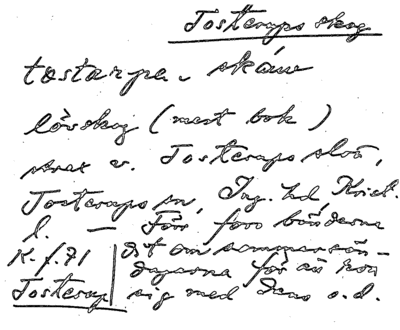 Tosterups skog
tostarpa⌣ skáuw
lövskog (mest bok)
strax v. Tosterups slott,
Tosterups sn, Ing. hd, Krist.
l. — Förr foro bönderna
K. f. 71 dit om sommarsön-
dagarna för att roa
Tosterup sig med dans o.d.